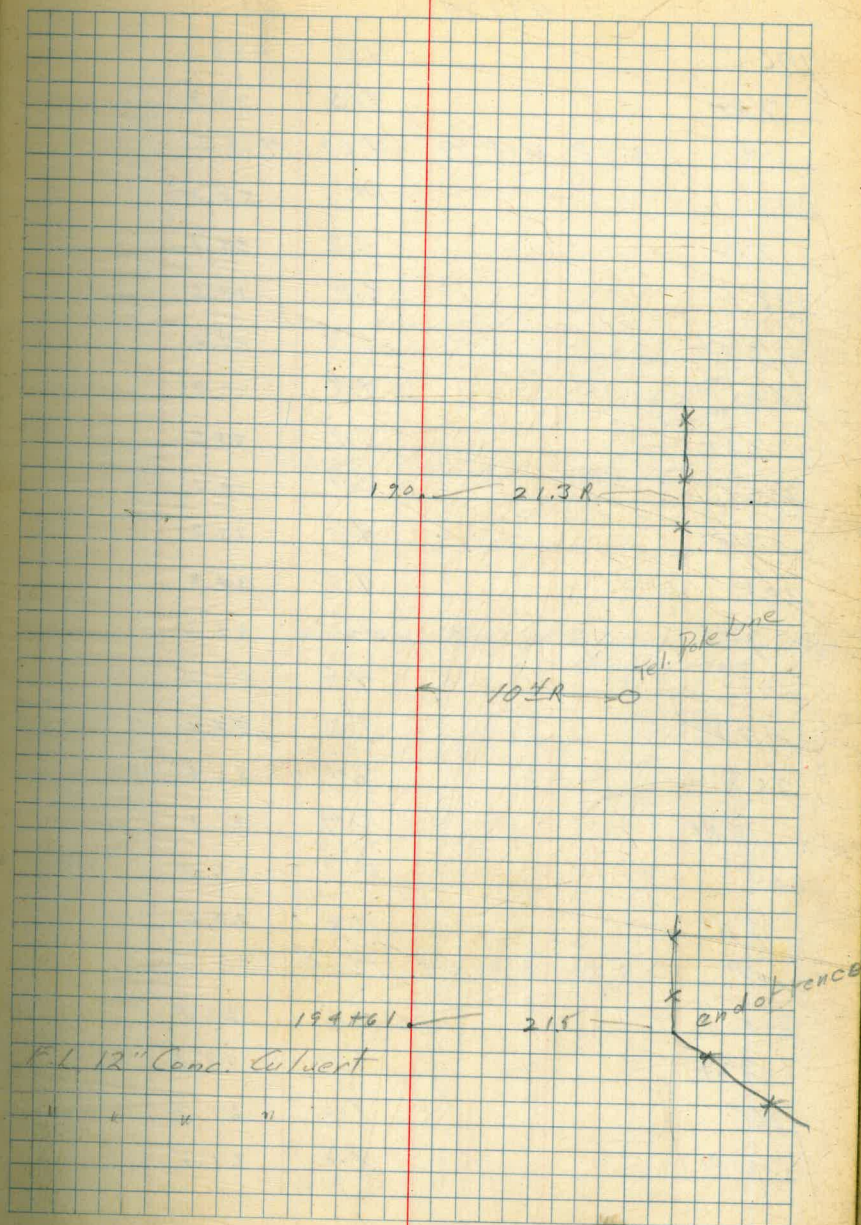 190 21.3 R
Tel. Pole Line
10 4 R
194+61 21.5 end of fence
F.L. 12" Conc. Culvert
" " " "